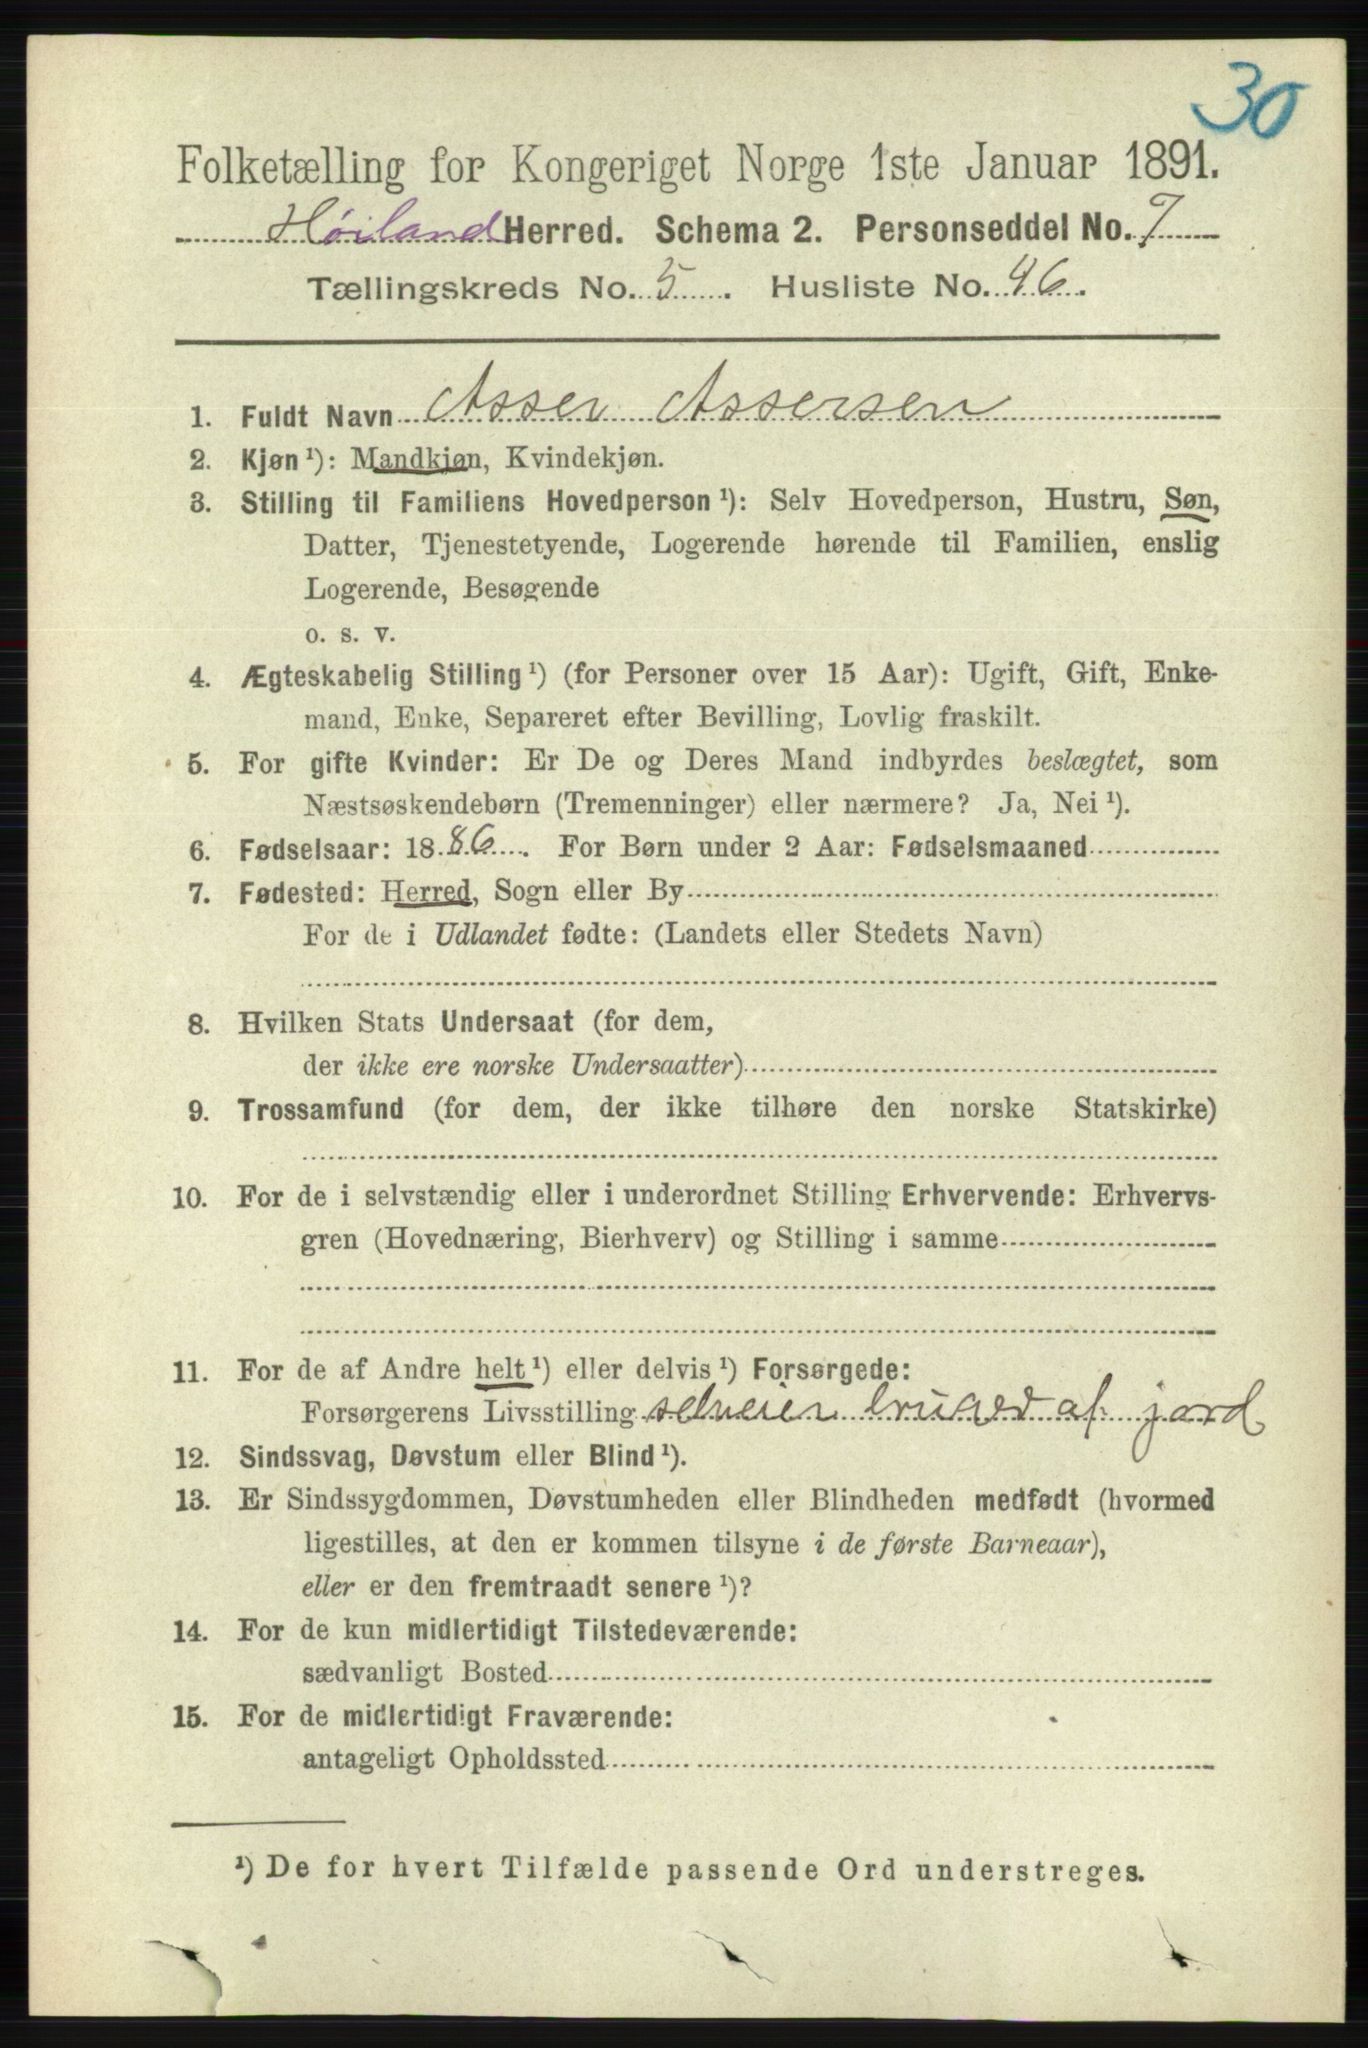 30
Folketælling for Kongeriget Norge 1ste Januar 1891.
Høiland Herred. Schema 2. Personseddel No. 7
Tællingskreds No. 5. Husliste No. 46.
1. Fuldt Navn Asser Assersen
2. Kjøn ¹): Mandkjøn, Kvindekjøn.
3. Stilling til Familiens Hovedperson ¹): Selv Hovedperson, Hustru, Søn,
Datter, Tjenestetyende, Logerende hørende til Familien, enslig
Logerende, Besøgende
o. s. v.
4. Ægteskabelig Stilling ¹) (for Personer over 15 Aar): Ugift, Gift, Enke-
mand, Enke, Separeret efter Bevilling, Lovlig fraskilt.
5. For gifte Kvinder: Er De og Deres Mand indbyrdes beslægtet, som
Næstsøskendebørn (Tremenninger) eller nærmere? Ja, Nei ¹).
6. Fødselsaar: 1886. For Børn under 2 Aar: Fødselsmaaned
7. Fødested: Herred, Sogn eller By
For de i Udlandet fødte: (Landets eller Stedets Navn)
8. Hvilken Stats Undersaat (for dem,
der ikke ere norske Undersaatter)
9. Trossamfund (for dem, der ikke tilhøre den norske Statskirke)
10. For de i selvstændig eller i underordnet Stilling Erhvervende: Erhvervs-
gren (Hovednæring, Bierhverv) og Stilling i samme
11. For de af Andre helt ¹) eller delvis ¹) Forsørgede:
Forsørgerens Livsstilling selveier bruger af jord
12. Sindssvag, Døvstum eller Blind ¹).
13. Er Sindssygdommen, Døvstumheden eller Blindheden medfødt (hvormed
ligestilles, at den er kommen tilsyne i de første Barneaar),
eller er den fremtraadt senere ¹)?
14. For de kun midlertidigt Tilstedeværende:
sædvanligt Bosted
15. For de midlertidigt Fraværende:
antageligt Opholdssted
¹) De for hvert Tilfælde passende Ord understreges.